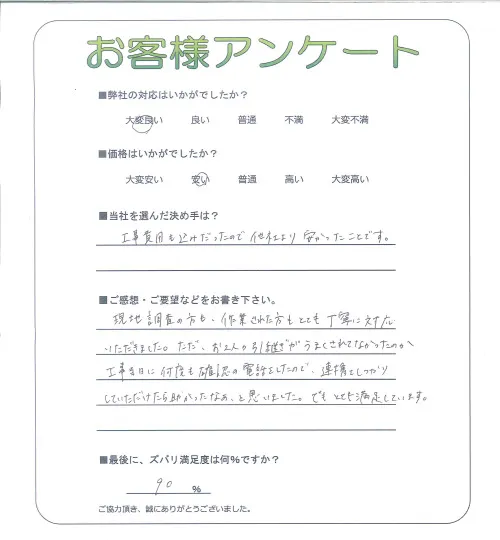 お客様アンケート
■弊社の対応はいかがでしたか?
大変良い 良い 普通 不満 大変不満
■価格はいかがでしたか?
大変安い 安い 普通 高い 大変高い
■当社を選んだ決め手は?
工事費用も込みだったので他社より安かったことです。
■ご感想・ご要望などをお書き下さい。
現地調査の方も、作業された方もとても丁寧に対応
いただきました。ただ、お2人の引継ぎがうまくされてなかったのか
工事当日に何度も確認の電話をしたので、連携をしっかり
していただけたら助かったなぁ、と思いました。でもとても満足しています。
■最後に、ズバリ満足度は何%ですか?
90 %
ご協力頂き、誠にありがとうございました。